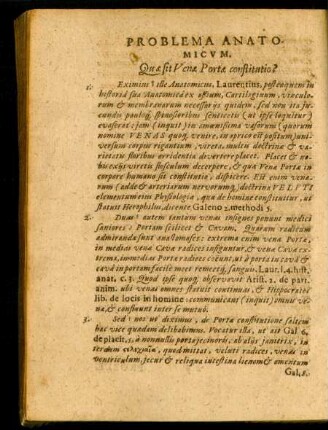 PROBLEMA ANATO-
MICVM.
Quæ sit Venæ Portæ constitutio?
1. Eximius ille Anatomicus, Laurentius, postquam in
historia sua Anatomica ex ossium, Cartilaginum, vinculo-
rum & membranarum necessarijs quidem, sed non ita ju-
cundis paulóq; spinosioribus senticetis (ut ipse loquitur)
evaserat: jam (inquit) in amœnissima vasorum (quorum
nomine VENAS quoq; venire, ut apricè est positum) uni-
versum corpus rigantium, vireta, multâ doctrinæ &
varietatis floribus ornata divertere placet. Placet &
nobis ex ijs viretis flosculum decerpere, & quæ Vena Portæ in
corpore humano sit constitutio, dispicere. Est enim vena-
rum (adde & arteriarum nervorumq;) doctrina VELUTI
elementum in Physiologia, quæ de homine constituitur, ut
statuit Herophilus, docente Galeno 2. methodi 5.
2. Duas autem tantum venas insignes ponunt medici
saniores: Portam scilicet & Cavam. Quarum radicum
admiranda sunt anastomoses: extrema enim vena Portæ,
in medias venæ Cavæ radices insiguntur, & venæ Cavæ ex-
trema, in medias Portæ radices coëunt, ut à porta in cavâ &
cava in portam facilè meet remeetq; sanguis. Laur. l. 4. hist.
anat. c. 3. Quod ipse quoq; observavit Arist. 2. de part.
anim. ubi venas omneis statuit continuas, & Hippocrates
lib. de locis in homine: communicant (inquit) omnes ve-
næ, & confluunt inter se mutuò.
3. Sed nos ut diximus, de Portæ constitutione saltem
hac vice quædam delibabimus. Vocatur illa, ut ait Gal. 6.
de placit. 5. à nonnullis porta jecinoris, ab alijs janitrix, in-
terdum quod mittat, veluti radices, venas in
ventriculum, jecur & reliqua intestina lienem & omentum
Gal. 5.